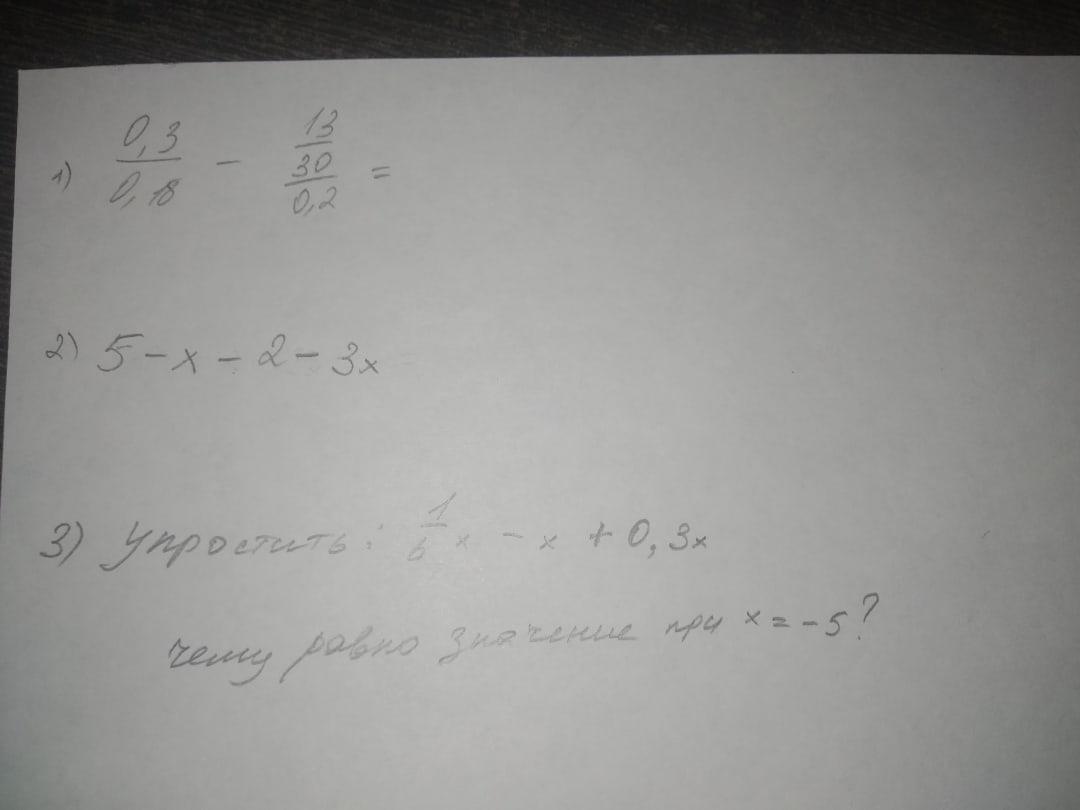 1) 0,3/0,18 - 13/30/0,2 =
2) 5 - x - 2 - 3x
3) Упростить: 1/6 x - x + 0,3x
чему равно значение при x = -5?